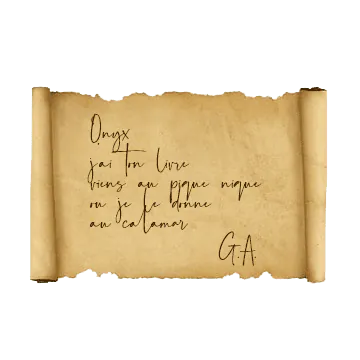 Onyx
j'ai ton livre
viens au pique nique
ou je le donne
au calamar
G.A.